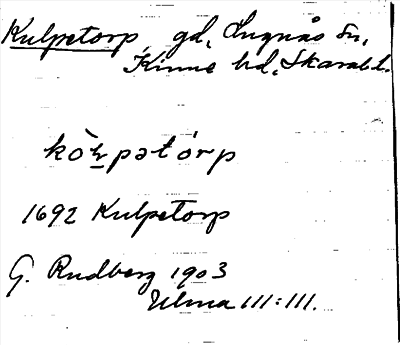 Kulpetorp gd, Lugnås sn,
Kinne hd, Skarab. l.
kò̀l̠pətórp
1692 Kulpetorp
G. Rudberg 1903
Ulma 111:111.